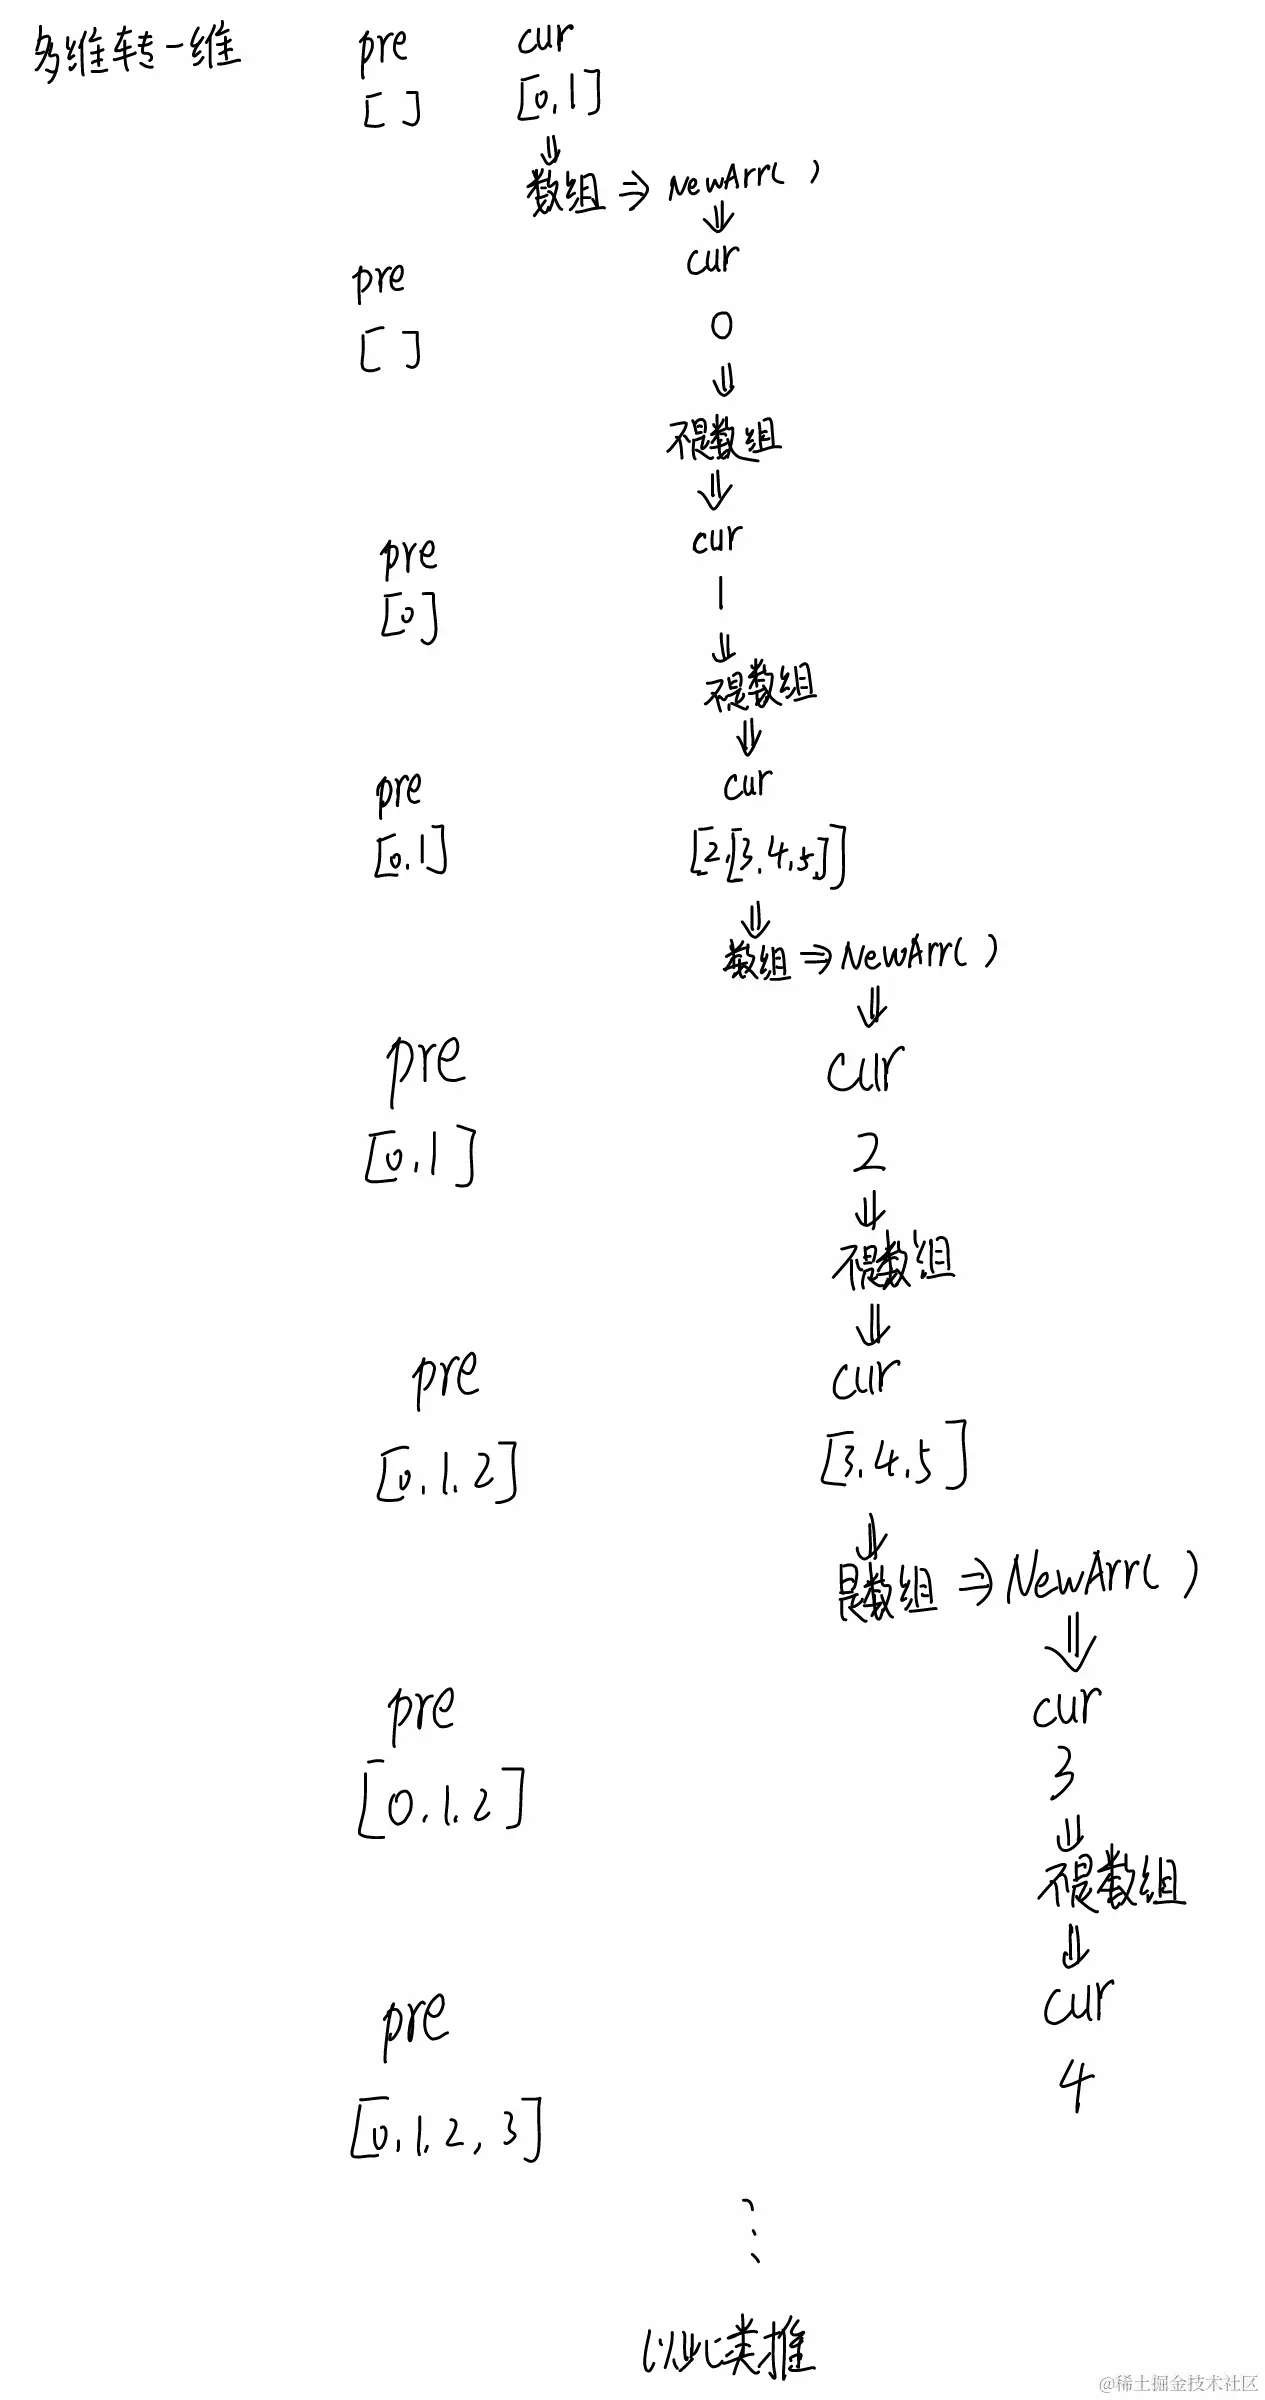 多维转一维 pre cur
[ ] [0,1]
⇓
数组 ⇒ NewArr( )
⇓
pre cur
[ ] 0
⇓
不是数组
⇓
pre cur
[0] 1
⇓
不是数组
⇓
pre cur
[0,1] [2,[3,4,5]]
⇓
数组 ⇒ NewArr( )
⇓
pre cur
[0,1] 2
⇓
不是数组
⇓
pre cur
[0,1,2] [3,4,5]
⇓
是数组 ⇒ NewArr( )
⇓
pre cur
[0,1,2] 3
⇓
不是数组
⇓
pre cur
[0,1,2,3] 4
⋮
以此类推
@稀土掘金技术社区